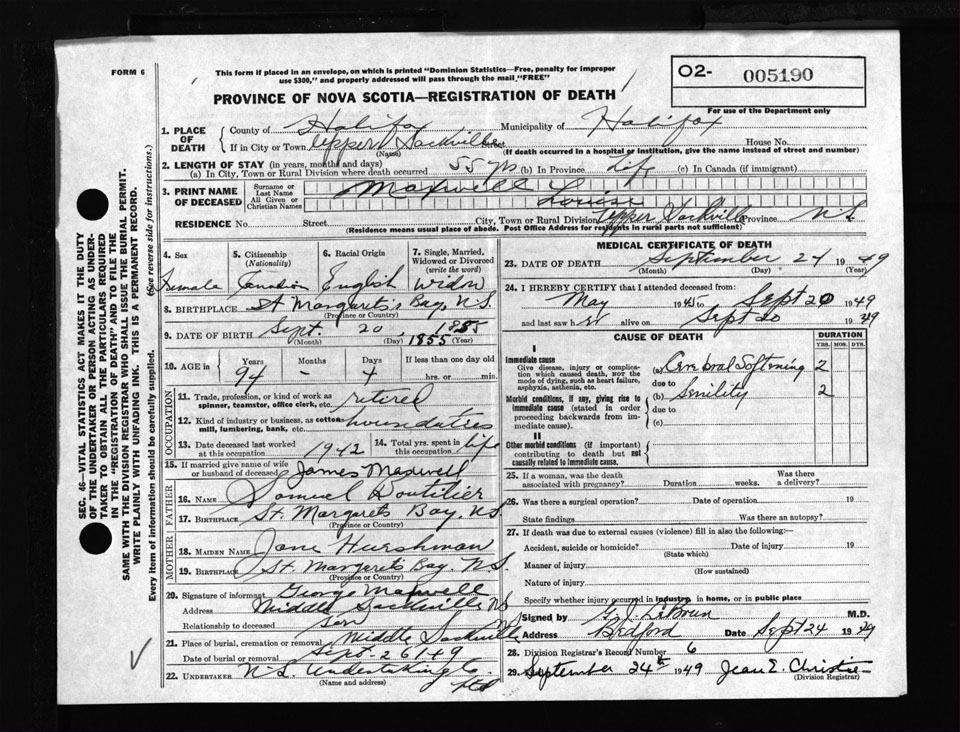 FORM 6
This form if placed in an envelope, on which is printed "Dominion Statistics—Free, penalty for improper
use $300," and properly addressed will pass through the mail "FREE"
O2- 005190
For use of the Department only
PROVINCE OF NOVA SCOTIA—REGISTRATION OF DEATH
1. PLACE OF DEATH
County of Halifax Municipality of Halifax
If in City or Town Upper Sackville Street House No.
(Name) (If death occurred in a hospital or institution, give the name instead of street and number)
2. LENGTH OF STAY (in years, months and days)
(a) In City, Town or Rural Division where death occurred 55 yrs (b) In Province Life (c) In Canada (if immigrant)
3. PRINT NAME OF DECEASED
Surname or Last Name Maxwell
All Given or Christian Names Louise
RESIDENCE No. Street City, Town or Rural Division Upper Sackville Province N S
(Residence means usual place of abode. Post Office Address for residents in rural parts not sufficient)
4. Sex Female
5. Citizenship (Nationality) Canadian
6. Racial Origin English
7. Single, Married, Widowed or Divorced (write the word) Widow
8. BIRTHPLACE St Margaret's Bay, N.S.
(Province or Country)
9. DATE OF BIRTH Sept. 20, 1855 1855
(Month) (Day) (Year)
10. AGE in Years Months Days If less than one day old
94 - 4 hrs. or min.
OCCUPATION
11. Trade, profession, or kind of work as spinner, teamster, office clerk, etc. retired
12. Kind of industry or business, as cotton mill, lumbering, bank, etc.
13. Date deceased last worked at this occupation 1942
14. Total yrs. spent in this occupation life
15. If married give name of wife or husband of deceased James Maxwell
FATHER
16. NAME Samuel Boutilier
17. BIRTHPLACE St. Margarets Bay, N.S.
(Province or Country)
MOTHER
18. MAIDEN NAME Jane Hurshman
19. BIRTHPLACE St. Margarets Bay, N.S.
(Province or Country)
20. Signature of informant George Maxwell
Address Middle Sackville N.S
Relationship to deceased son
21. Place of burial, cremation or removal Middle Sackville
Date of burial or removal Sept-26/49
22. UNDERTAKER N-S. Undertaking Co Ltd
(Name and address)
MEDICAL CERTIFICATE OF DEATH
23. DATE OF DEATH September 24 1949
(Month) (Day) (Year)
24. I HEREBY CERTIFY that I attended deceased from:
May 1945 to Sept 20 1949
and last saw her alive on Sept 20 1949
CAUSE OF DEATH DURATION
YRS. MOS. DYS.
I
Immediate cause
Give disease, injury or complication which caused death, NOT the mode of dying, such as heart failure, asphyxia, asthenia, etc.
(a) Cerebral Softening 2
due to
Morbid conditions, if any, giving rise to immediate cause (stated in order proceeding backwards from immediate cause).
(b) Senility 2
due to
(c)
II
Other morbid conditions (if important) contributing to death but not causally related to immediate cause.
25. If a woman, was the death associated with pregnancy? Duration weeks. Was there a delivery?
26. Was there a surgical operation? Date of operation 19
State findings Was there an autopsy?
27. If death was due to external causes (violence) fill in also the following:—
Accident, suicide or homicide? Date of injury 19
(State which)
Manner of injury
(How sustained)
Nature of injury
Specify whether injury occurred in industry, in home, or in public place
Signed by G. J. LeBrun M.D.
Address Bedford Date Sept 24 1949
28. Division Registrar's Record Number 6
29. September 24th 1949 Jean E. Christie
(Division Registrar)
SEC. 46—VITAL STATISTICS ACT MAKES IT THE DUTY
OF THE UNDERTAKER OR PERSON ACTING AS UNDER-
TAKER TO OBTAIN ALL THE PARTICULARS REQUIRED
IN THE "REGISTRATION OF DEATH" AND TO FILE THE
SAME WITH THE DIVISION REGISTRAR WHO SHALL ISSUE THE BURIAL PERMIT.
WRITE PLAINLY WITH UNFADING INK. THIS IS A PERMANENT RECORD.
Every item of information should be carefully supplied. (See reverse side for instructions.)